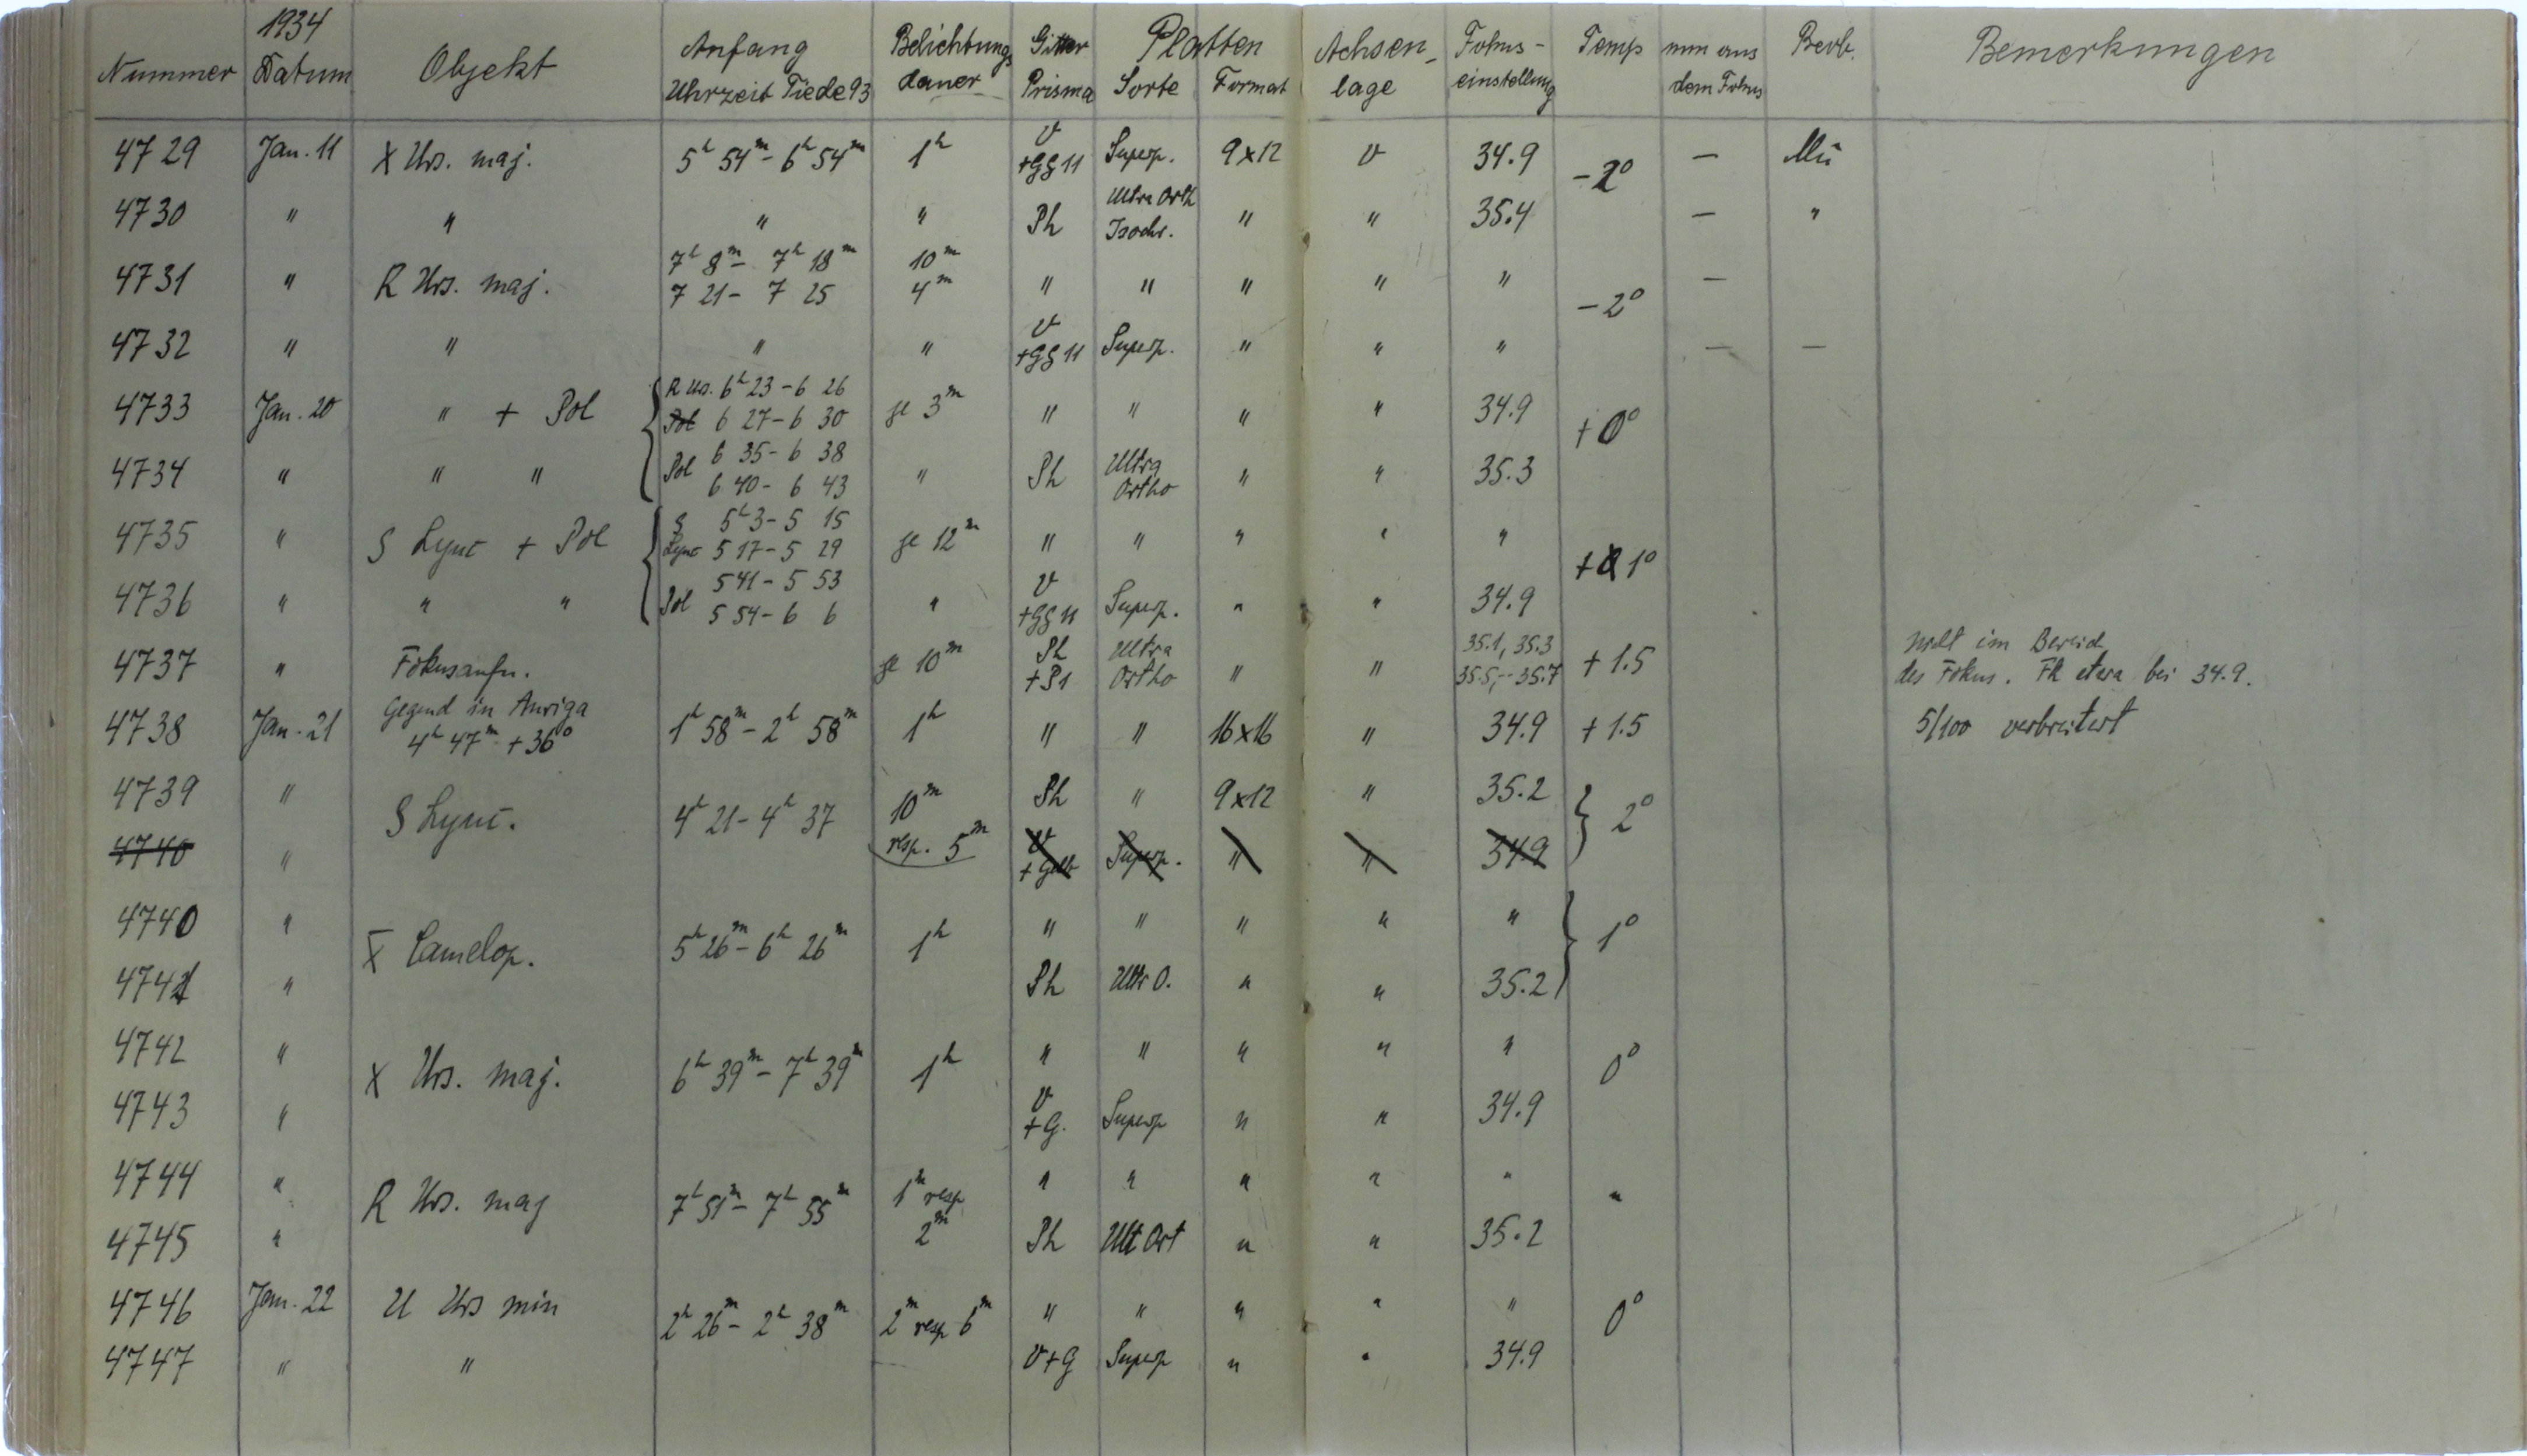 1934
Nummer Datum Objekt Anfang Uhrzeit Tiede 93 Belichtungsdauer Gitter Prisma Platten Sorte Format Achsenlage Fokuseinstellung Temp mm aus dem Fokus Beob. Bemerkungen
4729 Jan. 11 X Urs. maj. 5h 54m – 6h 54m 1h V +GG 11 Superp. 9x12 V 34.9 –2° — Mü
4730 " " " " Ph Ultra Orth Isochr. " " 35.4 — "
4731 " R Urs. maj. 7h 8m – 7h 18m 10m
7 21 – 7 25 4m " " " " " –2° —
4732 " " " " V +GG 11 Superp. " " " — —
4733 Jan. 20 " + Pol R Urs. 6h 23 – 6 26
6 27 – 6 30 je 3m " " " " 34.9 +0°
4734 " " " Pol 6 35 – 6 38
6 40 – 6 43 " Ph Ultra Ortho " " 35.3
4735 " S Lync + Pol S Lync 5h 3 – 5 15
5 17 – 5 29 je 12m " " " " " + 1°
4736 " " " Pol 5 41 – 5 53
5 54 – 6 6 " V +GG 11 Superp. " " 34.9
4737 " Fokusaufn. je 10m Ph +P1 Ultra Ortho " " 35.1, 35.3
35.5, -- 35.7 +1.5 nicht im Bereich
des Fokus. Fk etwa bei 34.9.
4738 Jan. 21 Gegend in Auriga
4h 47m +36° 1h 58m – 2h 58m 1h " " 16x16 " 34.9 +1.5 5/100 verbreitert
4739 " S Lync. 4h 21 – 4h 37 10m Ph " 9x12 " 35.2 2°
4740 " resp. 5m V + Gelb Superp. " " 34.9
4740 " X Camelop. 5h 26m – 6h 26m 1h " " " " " 1°
4741 " Ph Ultr O. " " 35.2
4742 " X Urs. maj. 6h 39m – 7h 39m 1h " " " " " 0°
4743 " V +G. Superp " " 34.9
4744 " R Urs. maj 7h 51m – 7h 55m 1m resp " " " " " "
4745 " 2m Ph Ult Ort " " 35.2
4746 Jan. 22 U Urs min 2h 26m – 2h 38m 2m resp 6m " " " " " 0°
4747 " " V+G Superp " " 34.9